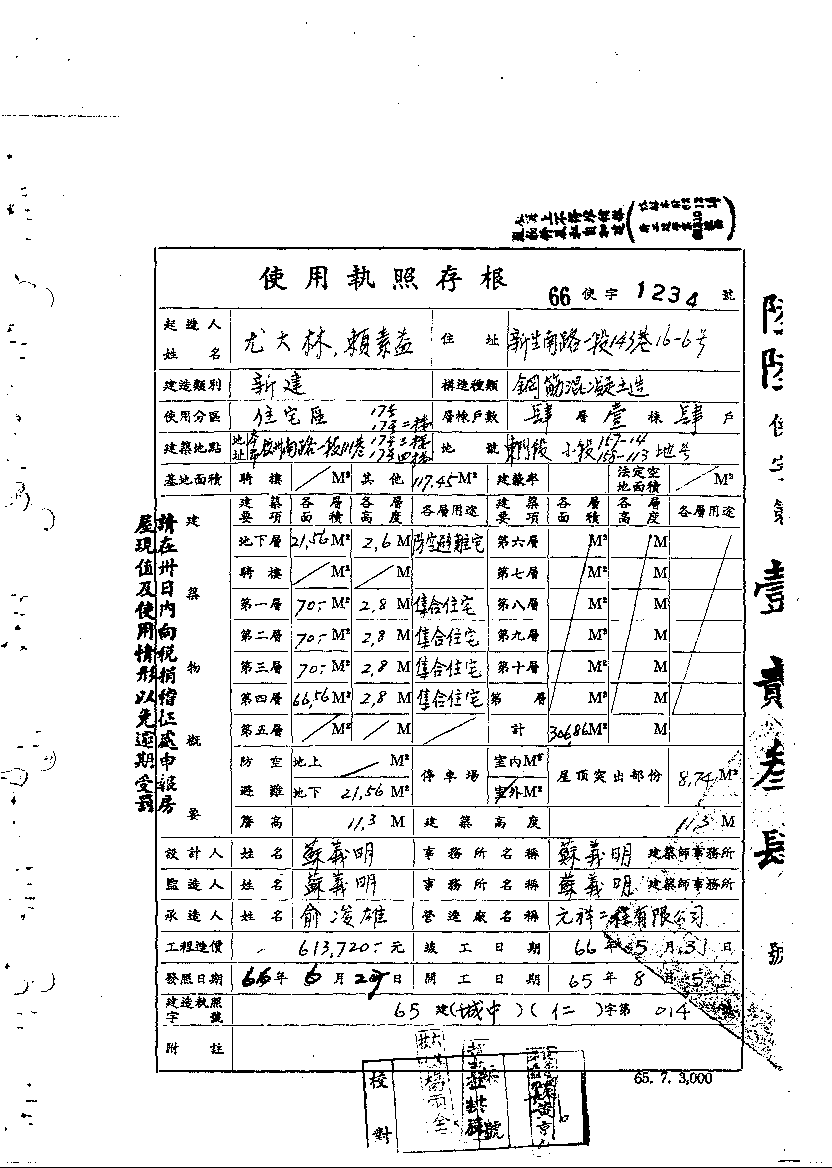 使用執照存根
66 使字 1234 號
起造人姓名 尤大林、賴素益 住址 新生南路一段143巷16-6号
建造類別 新建 構造種類 鋼筋混凝土造
使用分區 住宅區 層棟戶數 肆層壹棟肆戶
建築地點 地址 杭州南路一段111巷 17号 17号二樓 17号三樓 17号四樓 地號 東門段 小段 157-14 158-113 地号
基地面積 騎樓 ／M² 其他 117.45M² 建蔽率 法定空地面積 ／M²
建築要項 各層面積 各層高度 各層用途 建築要項 各層面積 各層高度 各層用途
地下層 21,56M² 2,6M 防空避難宅 第六層 M² M
騎樓 ／M² ／M 第七層 M² M
第一層 70-M² 2,8M 集合住宅 第八層 M² M
第二層 70-M² 2,8M 集合住宅 第九層 M² M
第三層 70-M² 2,8M 集合住宅 第十層 M² M
第四層 66,56M² 2,8M 集合住宅 第 層 M² M
第五層 ／M² ／M ／ 計 306.86M² M
防空避難 地上 ／M² 停車場 室內M² 屋頂突出部份 8,74M²
地下 21,56M² 室外M²
簷高 11,3M 建築高度 11,3M
設計人 姓名 蘇義明 事務所名稱 蘇義明 建築師事務所
監造人 姓名 蘇義明 事務所名稱 蘇義明 建築師事務所
承造人 姓名 俞浚雄 營造廠名稱 元祥工程有限公司
工程造價 613,720-元 竣工日期 66年05月31日
發照日期 66年6月29日 開工日期 65年8月5日
建造執照字號 65建(城中)(仁)字第014號
附註
65.7.3,000
校對
建築物概要
請在卅日內向稅捐稽征處申報房
屋現值及使用情形以免逾期受罰
陸陸使字第壹貳叁肆號